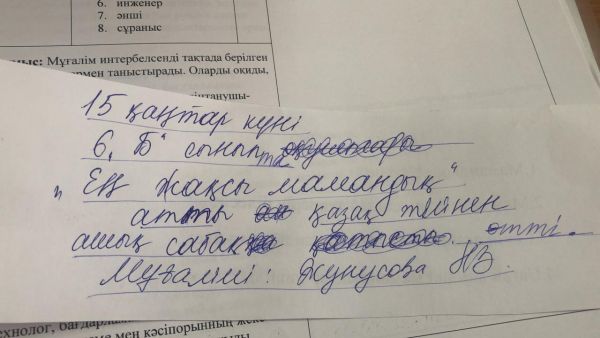 6. инженер
7. әнші
8. сұраныс
Мұғалім интербелсенді тақтада берілген
таныстырады. Оларды оқиды,
15 қаңтар күні
6 „Б“ сыныпта
„Ең жақсы мамандық“
атты қазақ тілінен
ашық сабақ өтті.
Мұғалімі: Жунусова Н Б.
мен кәсіпорынның жеке